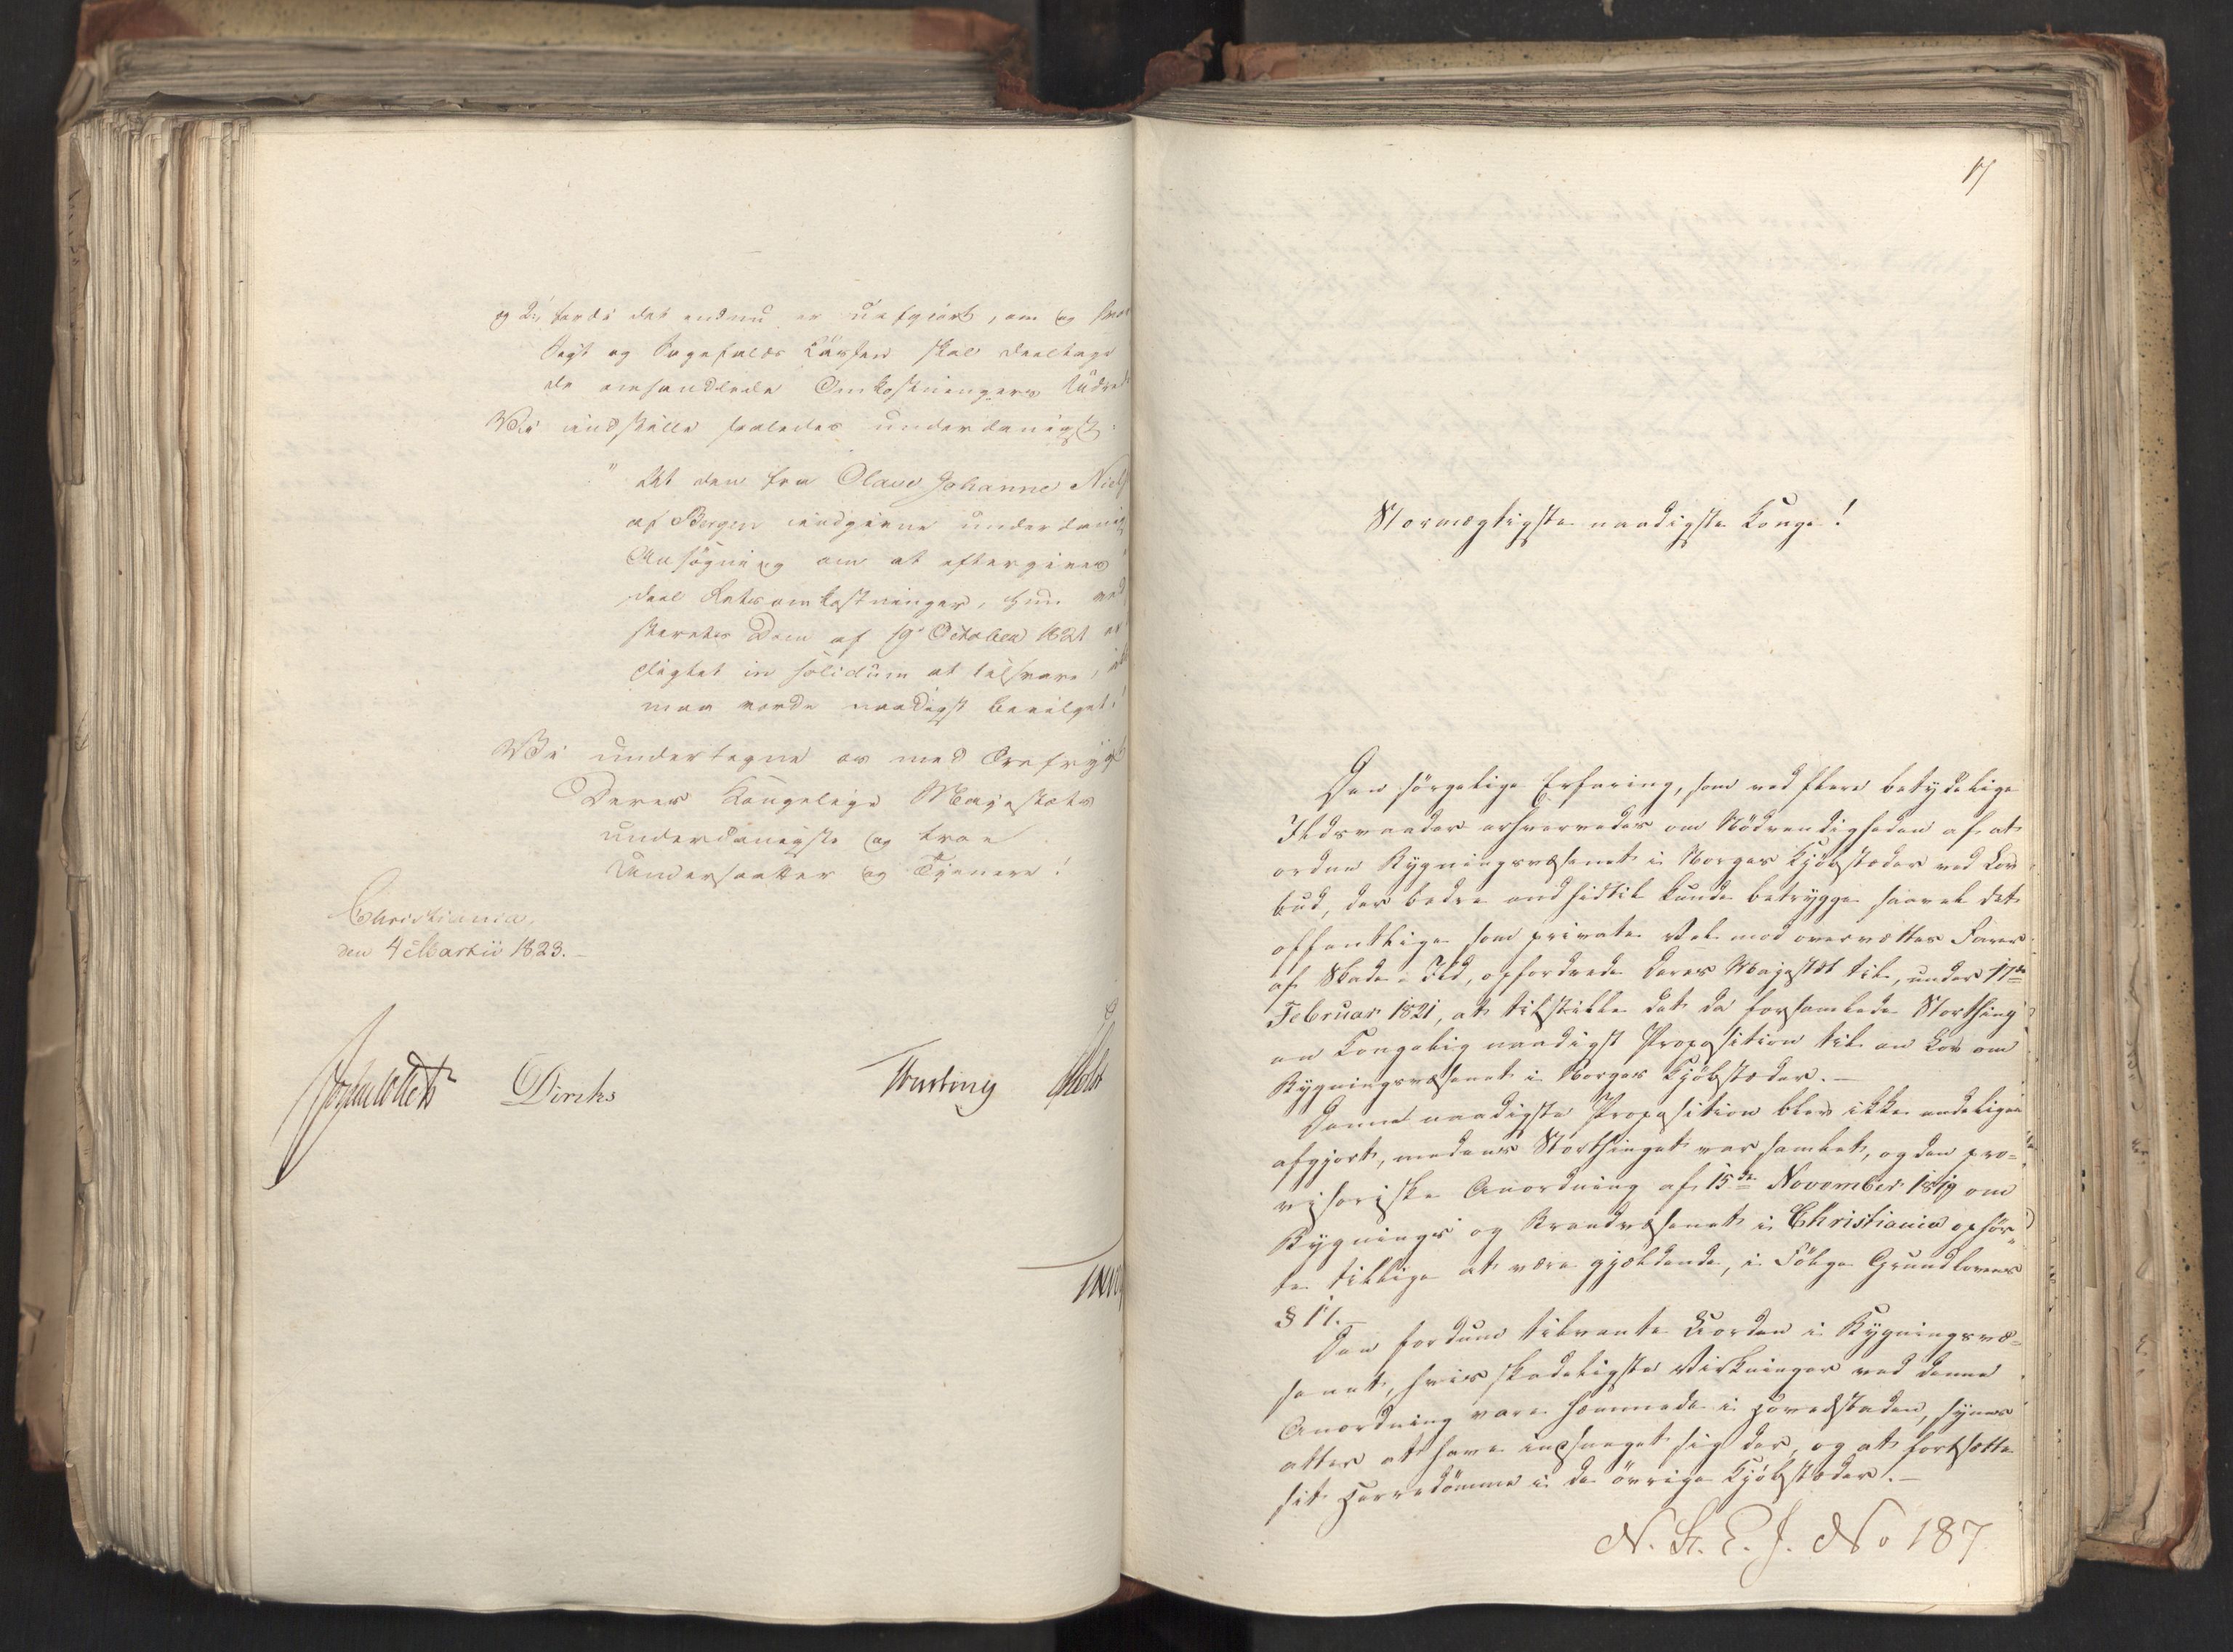 og 2., fordi det endnu er uafgiort, om og hvor
Sigt og Sagefalds Kassen skal deeltage
de omhandlede Omkostningers Udred
Vi indstille saaledes underdanigst:
"At den fra Olave Johanne Niels
af Bergen indgivne underdanig
Ansøgning om at eftergives
deel Retsomkostninger, hun ved
sterets Dom af 19 October 1821 er
pligtet in solidum at tilsvare, ik
maa vorde naadigst bevilget."
Vi undertegne os med Ærefrygt
Deres Kongelige Majestæts
underdanigste og troe
Undersaatter og Tjenere!
Christiania,
den 4 Martii 1823.
Diriks
Treschow
17
Stormægtigste naadigste Konge!
Den sörgelige Erfaring, som ved flere betydelige
Ildsvaader erhvervedes om Nödvendigheden af at
ordne Bygningsvæsenet i Norges Kjöbstæder ved Lov
bud, der bedre end hidtil kunde betrygge saavel det
offentlige som private Vel mod overvættes Farer
af Skade i Ild, opfordrede Deres Majestæt til, under 17de
Februar 1821, at tilstille det da forsamlede Storthing
en Kongelig naadigst Proposition til en Lov om
Bygningsvæsenet i Norges Kjöbstæder. —
Denne naadigste Proposition blev ikke endeligen
afgjort, medens Storthinget var samlet, og den pro=
visoriske Anordning af 15de November 1819 om
Bygnings og Brandvæsenet i Christiania ophör=
te tillige at være gjældende, i Fölge Grundlovens
§ 17. —
Den fordum tilvante Uorden i Bygningsvæ=
senet, hvis skadeligste Virkninger ved denne
Anordning vare hæmmede i Hovedstaden, synes
atter at have indsneget sig der, og at fortsætte
sit Herredömme i de övrige Kjöbstæder. —
N. St. E. J. No 187